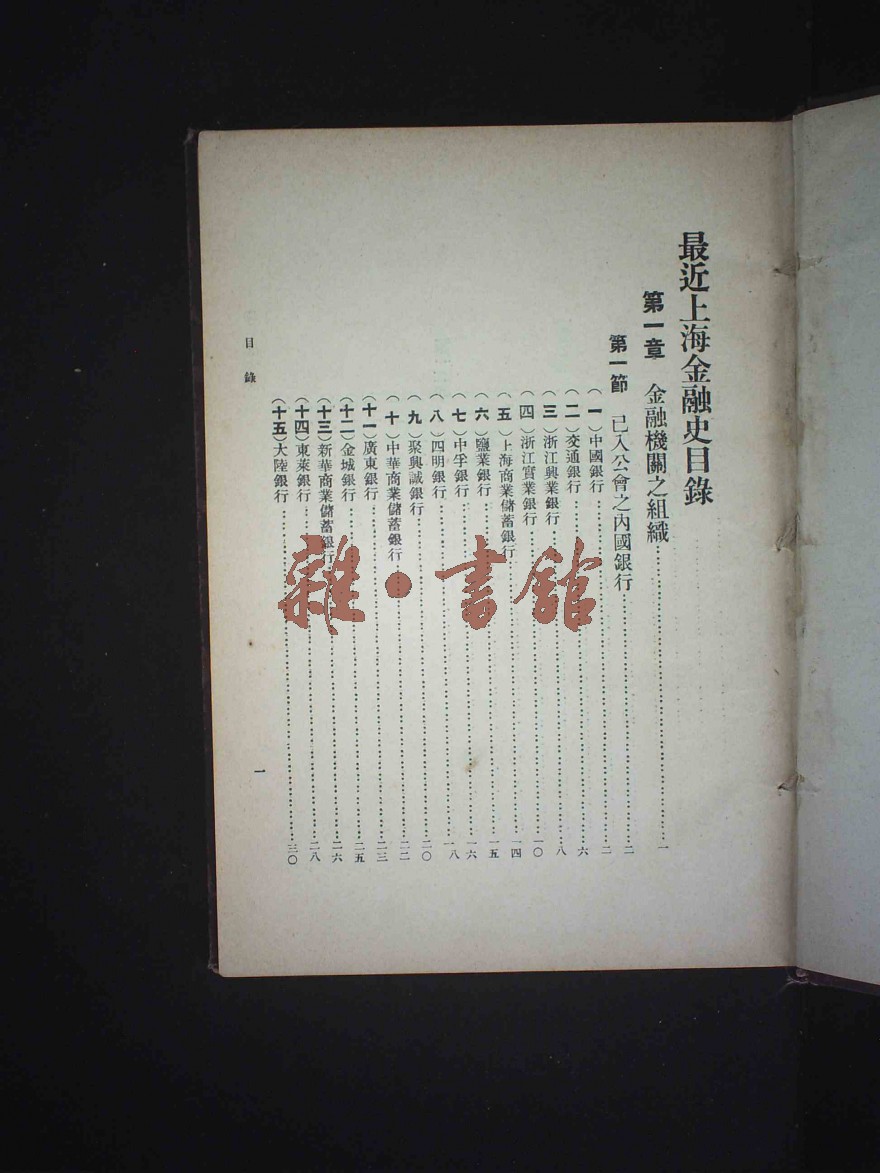 最近上海金融史目錄
第一章　金融機關之組織……一
第一節　已入公會之內國銀行……二
（一）中國銀行……二
（二）交通銀行……六
（三）浙江興業銀行……八
（四）浙江實業銀行……一〇
（五）上海商業儲蓄銀行……一四
（六）鹽業銀行……一五
（七）中孚銀行……一六
（八）四明銀行……一八
（九）聚興誠銀行……二〇
（十）中華商業儲蓄銀行……二二
（十一）廣東銀行……二三
（十二）金城銀行……二五
（十三）新華商業儲蓄銀行……二六
（十四）東萊銀行……二八
（十五）大陸銀行……三〇
目錄
一
雜·書館